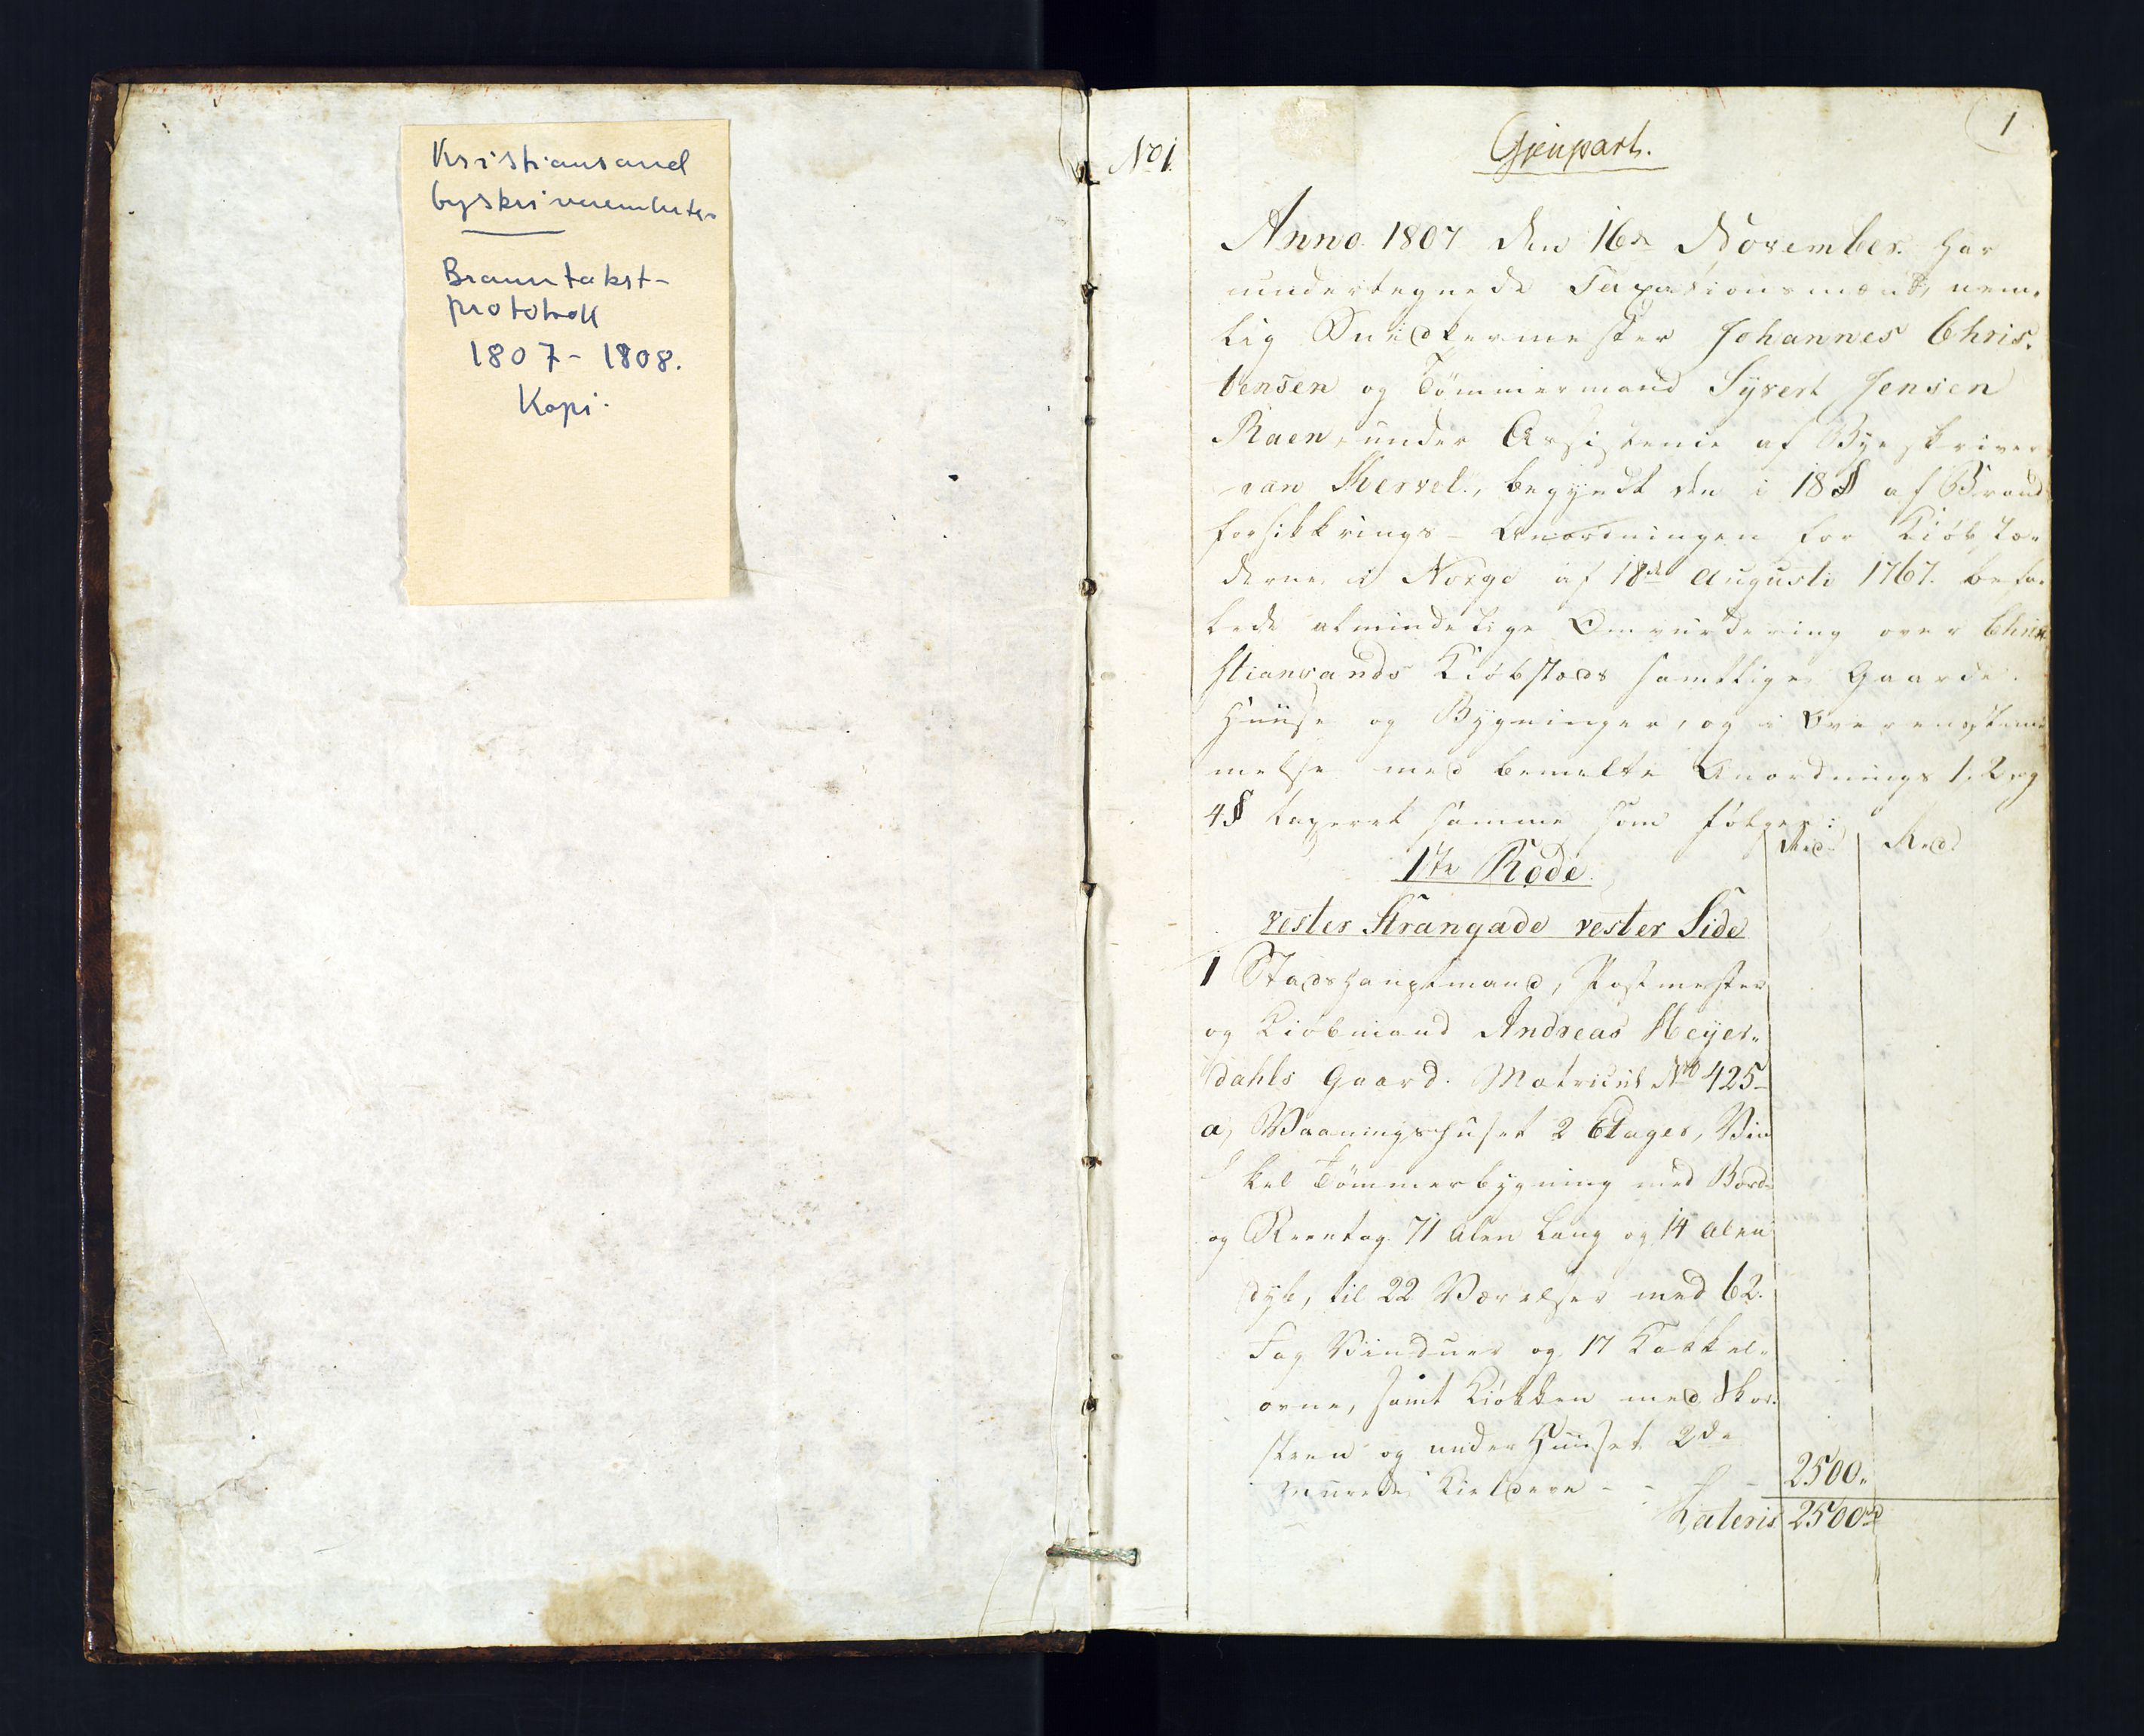 Kristiansand
byskriverembete.
Branntakst-
protokoll
1807-1808.
Kopi.
No 1.
1
Gjenpart.
Anno 1807 den 16de November. har
undertegnede Taxasionsmænd, nem-
lig Snidkermester Johannes Chris-
tensen og Tømmermand Syvert Jensen
Raen, under Assistence af Byeskriver
van Kervel, begyndt den i 18 § af Brand
forsikkrings-Anordningen for Kiøbstæ-
derne i Norge af 18de Augusti 1767. befa-
lede almindelige Omvurdering over Chri-
stiansands Kiøbstads samtlige Gaarde,
Huuse og Bygninger, og i Overenstem-
melse med bemelte Anordnings 1, 2 og
4 § taxeret samme som følger:
Rd Rd
1ste Rode.
vester Strangade vester Side
1 Stadshauptmand, Postmester
og Kiøbmand Andreas Heyer-
dahls Gaard. Matricul No 425-
a, Vaaningshuset 2 Etager, Vin
kel Tømmerbygning med Bord-
og Steentag 71 Alen lang og 14 Alen
dyb, til 22 Værelser med 62.
Fag Vinduer og 17 Kakkel-
ovne, samt Kiøkken med Skor-
steen og under Huuset 2de
murede Kieldere - - - 2500.
Lateris 2500 rd